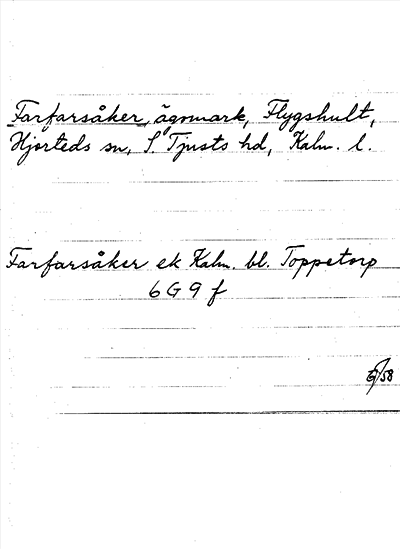 Farfarsåker, ägomark, Flygshult,
Hjorteds sn, S. Tjusts hd, Kalm. l.
Farfarsåker ek Kalm. bl. Toppetorp
6 G 9 f